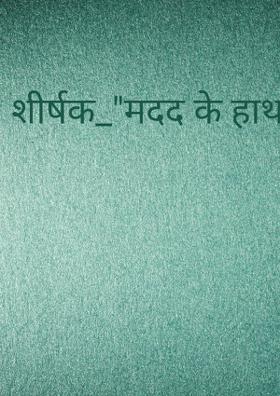 शीर्षक_"मदद के हाथ